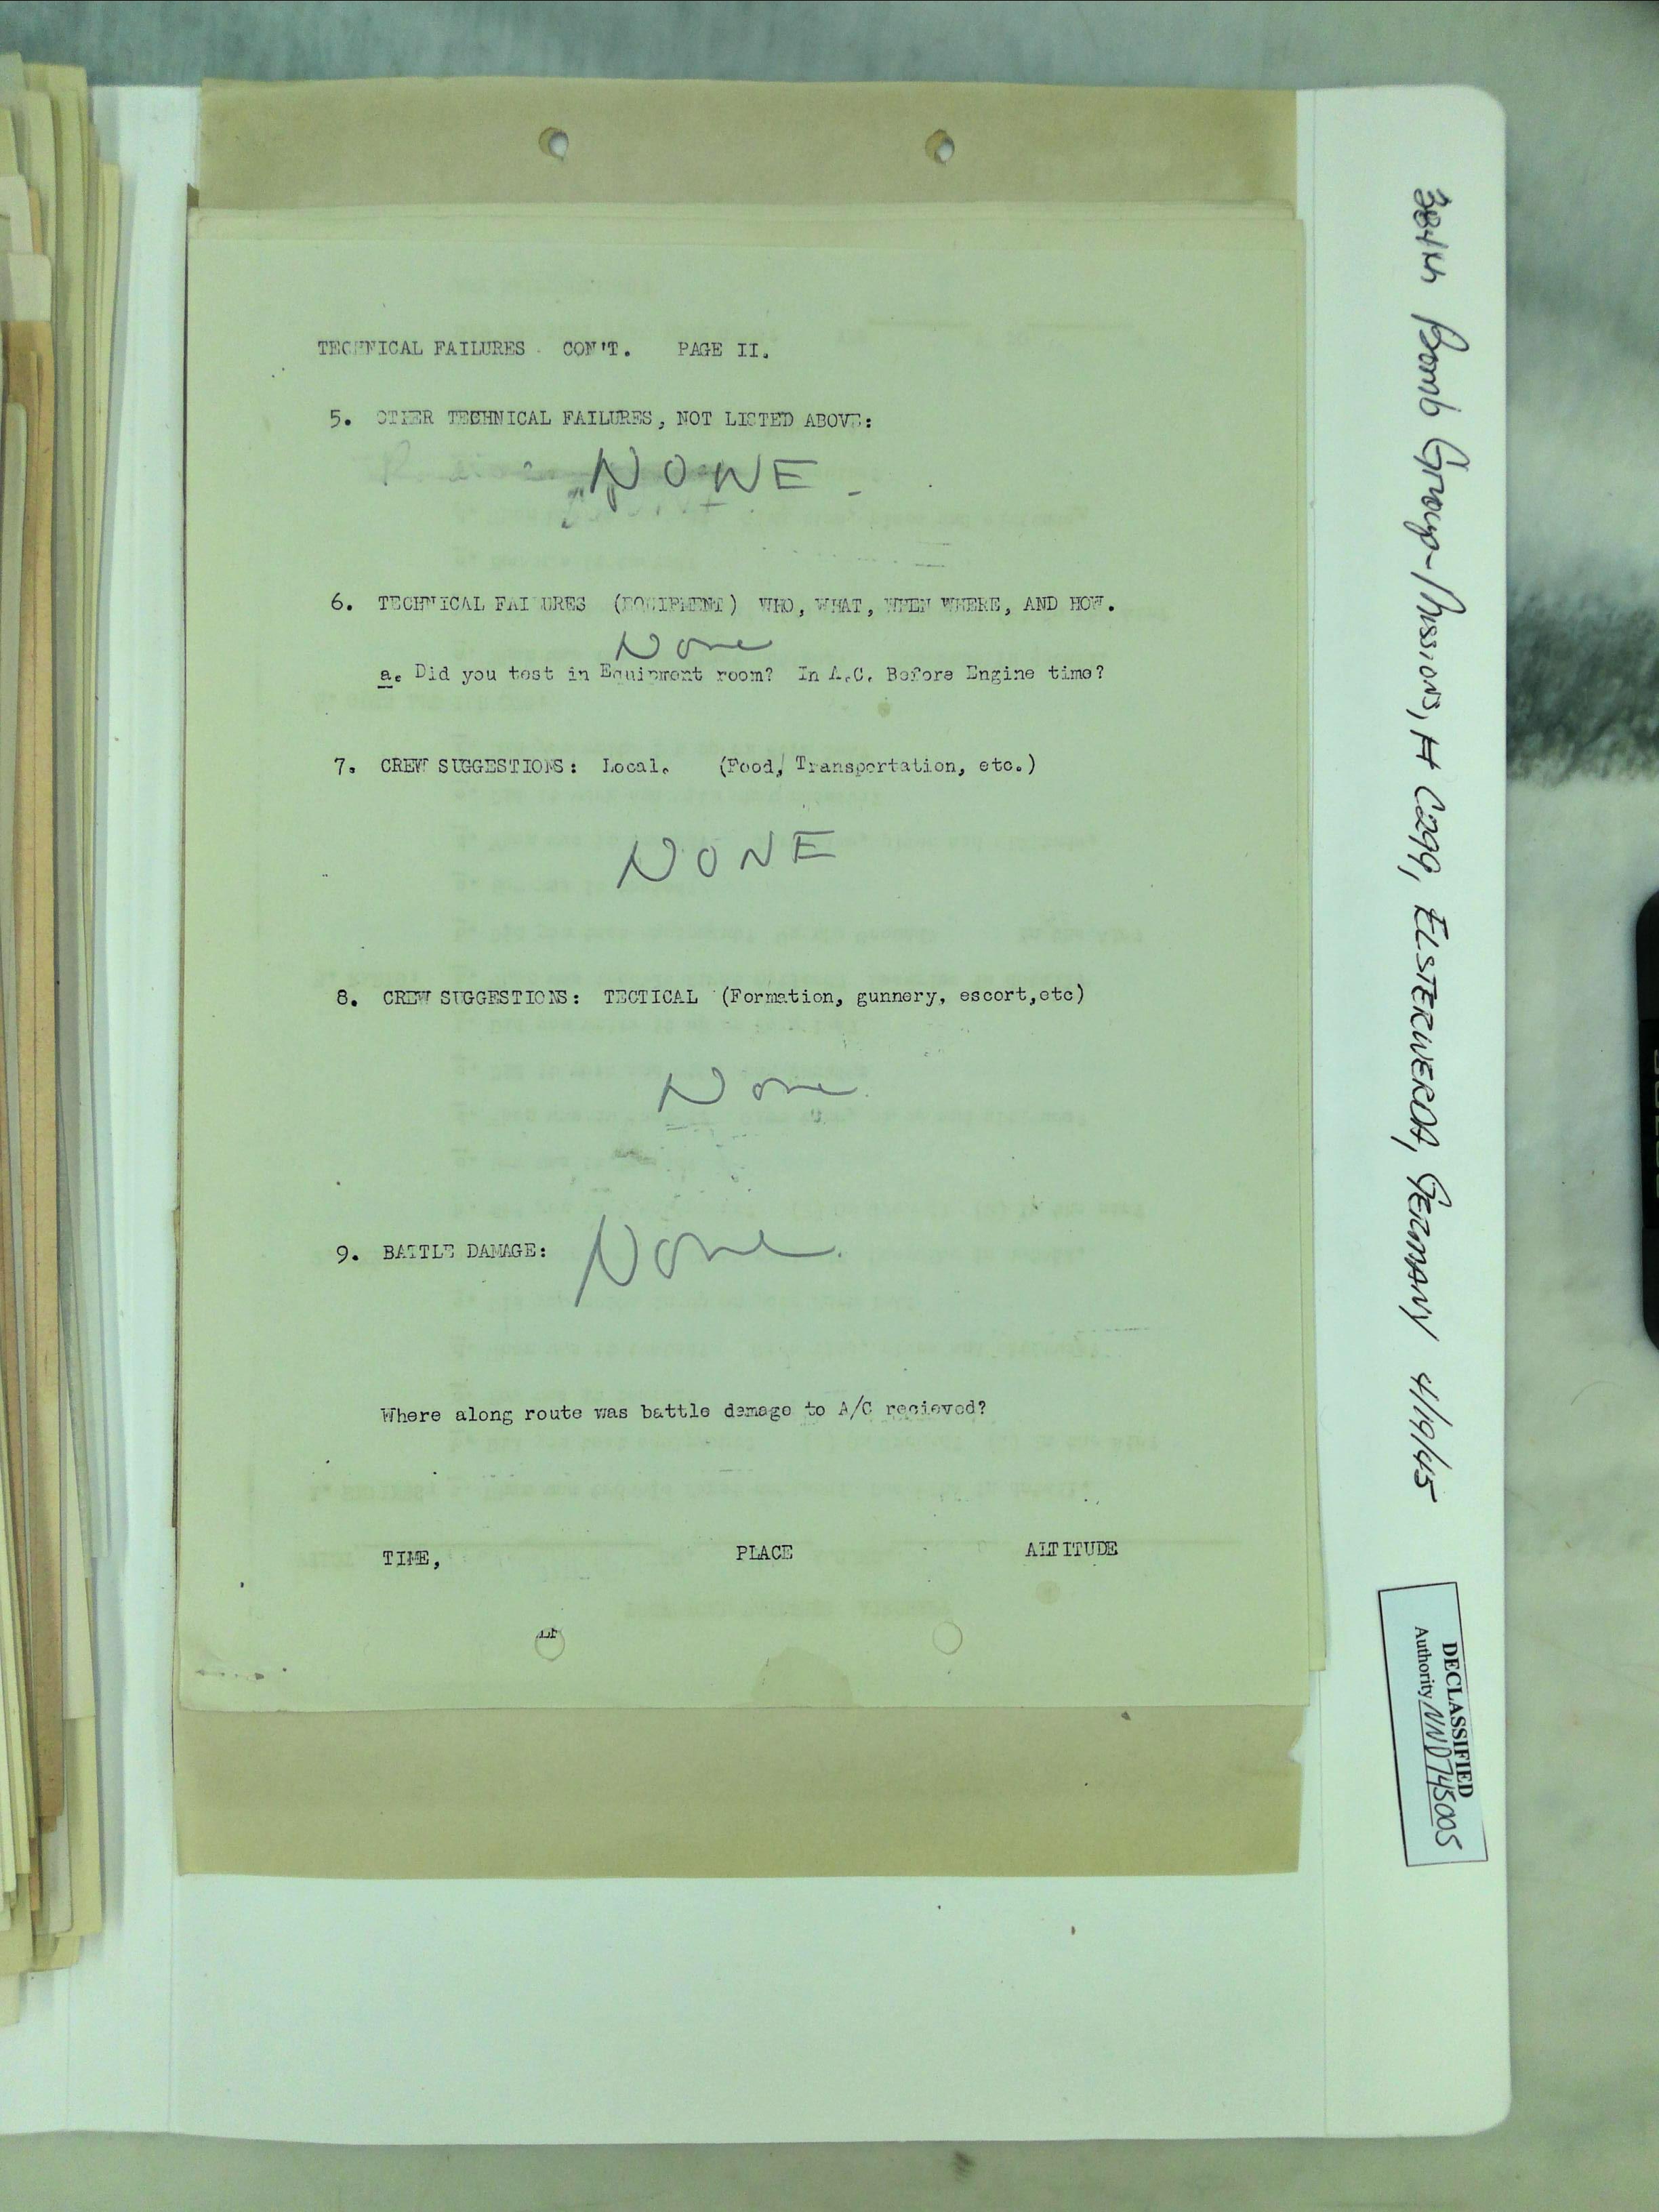 TECHNICAL FAILURES CON'T. PAGE II.
5. OTHER TECHNICAL FAILURES, NOT LISTED ABOVE:
NONE
6. TECHNICAL FAILURES (EQUIPMENT) WHO, WHAT, WHEN WHERE, AND HOW.
None
a. Did you test in Equipment room? In A.C. Before Engine time?
7. CREW SUGGESTIONS: Local. (Food, Transportation, etc.)
NONE
8. CREW SUGGESTIONS: TECTICAL (Formation, gunnery, escort,etc)
None
9. BATTLE DAMAGE: None.
Where along route was battle damage to A/C recieved?
TIME, PLACE ALTITUDE
384th Bomb Group-Missions, # C299, ELSTERWERDA, GERMANY 4/19/45
DECLASSIFIED
Authority NND745005